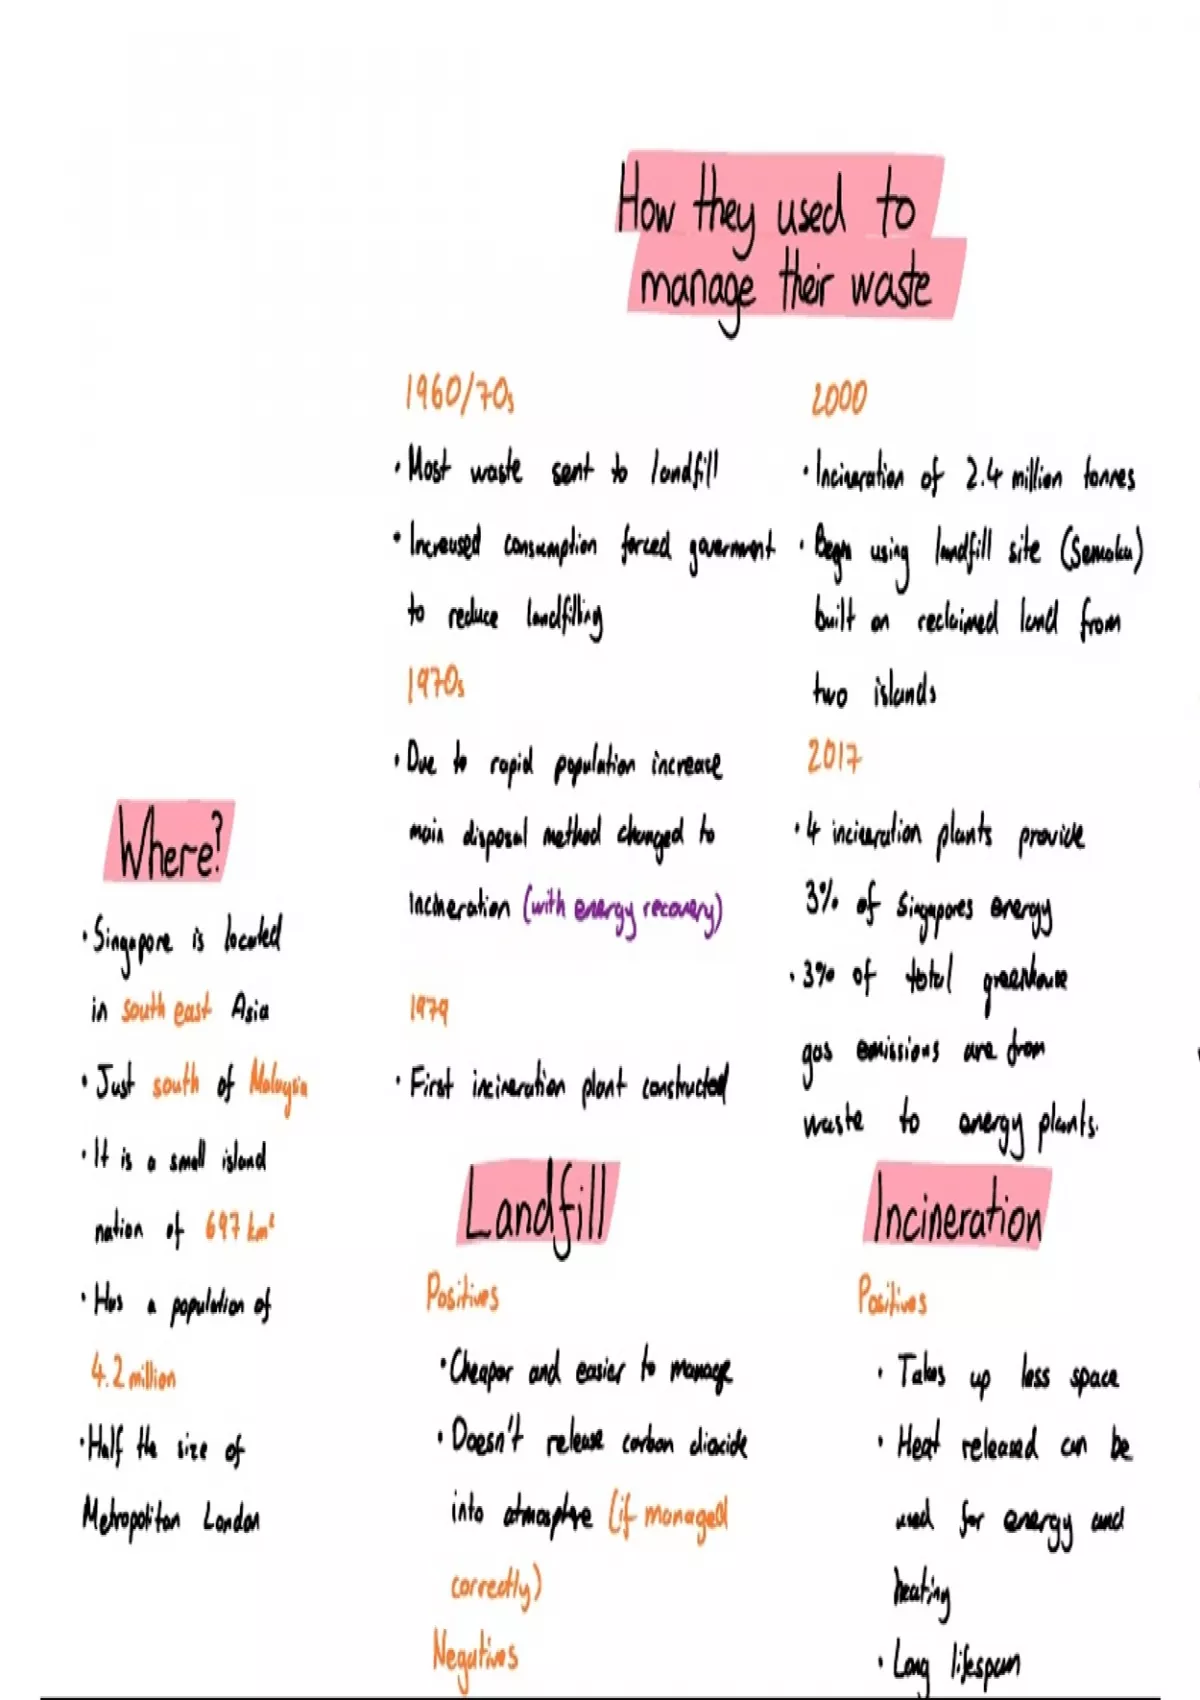 How they used to
manage their waste
1960/70s
• Most waste sent to landfill
• Increased consumption forced government
to reduce landfilling
1970s
• Due to rapid population increase
main disposal method changed to
incineration (with energy recovery)
1979
• First incineration plant constructed
2000
• Incineration of 2.4 million tonnes
• Began using landfill site (Semaku)
built on reclaimed land from
two islands
2017
• 4 incineration plants provide
3% of Singapores energy
• 3% of total greenhouse
gas emissions are from
waste to energy plants.
Where?
• Singapore is located
in south east Asia
• Just south of Malaysia
• It is a small island
nation of 697 km²
• Has a population of
4.2 million
• Half the size of
Metropolitan London
Landfill
Positives
• Cheaper and easier to manage
• Doesn't release carbon dioxide
into atmosphere (if managed
correctly)
Negatives
Incineration
Positives
• Takes up less space
• Heat released can be
used for energy and
heating
• Long lifespan